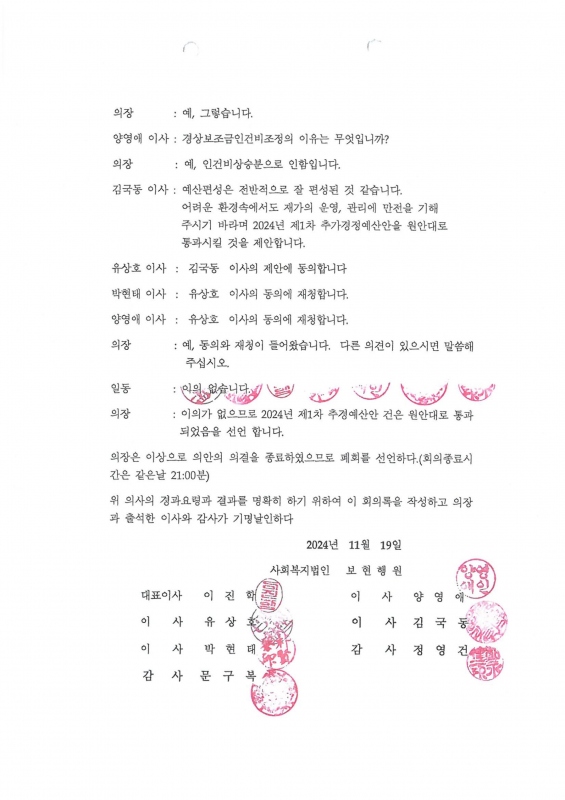 의장 : 예, 그렇습니다.
양영애 이사 : 경상보조금인건비조정의 이유는 무엇입니까?
의장 : 예, 인건비상승분으로 인함입니다.
김국동 이사 : 예산편성은 전반적으로 잘 편성된 것 같습니다.
어려운 환경속에서도 재가의 운영, 관리에 만전을 기해
주시기 바라며 2024년 제1차 추가경정예산안을 원안대로
통과시킬 것을 제안합니다.
유상호 이사 : 김국동 이사의 제안에 동의합니다
박현태 이사 : 유상호 이사의 동의에 재청합니다.
양영애 이사 : 유상호 이사의 동의에 재청합니다.
의장 : 예, 동의와 재청이 들어왔습니다. 다른 의견이 있으시면 말씀해
주십시오.
일동 : 이의 없습니다.
의장 : 이의가 없으므로 2024년 제1차 추경예산안 건은 원안대로 통과
되었음을 선언 합니다.
의장은 이상으로 의안의 의결을 종료하였으므로 폐회를 선언하다.(회의종료시
간은 같은날 21:00분)
위 의사의 경과요령과 결과를 명확히 하기 위하여 이 회의록을 작성하고 의장
과 출석한 이사와 감사가 기명날인하다
2024년 11월 19일
사회복지법인 보현행원
대표이사 이 진 학 이 사 양 영 애
이 사 유 상 호 이 사 김 국 동
이 사 박 현 태 감 사 정 영 건
감 사 문 구 복
양영
애인